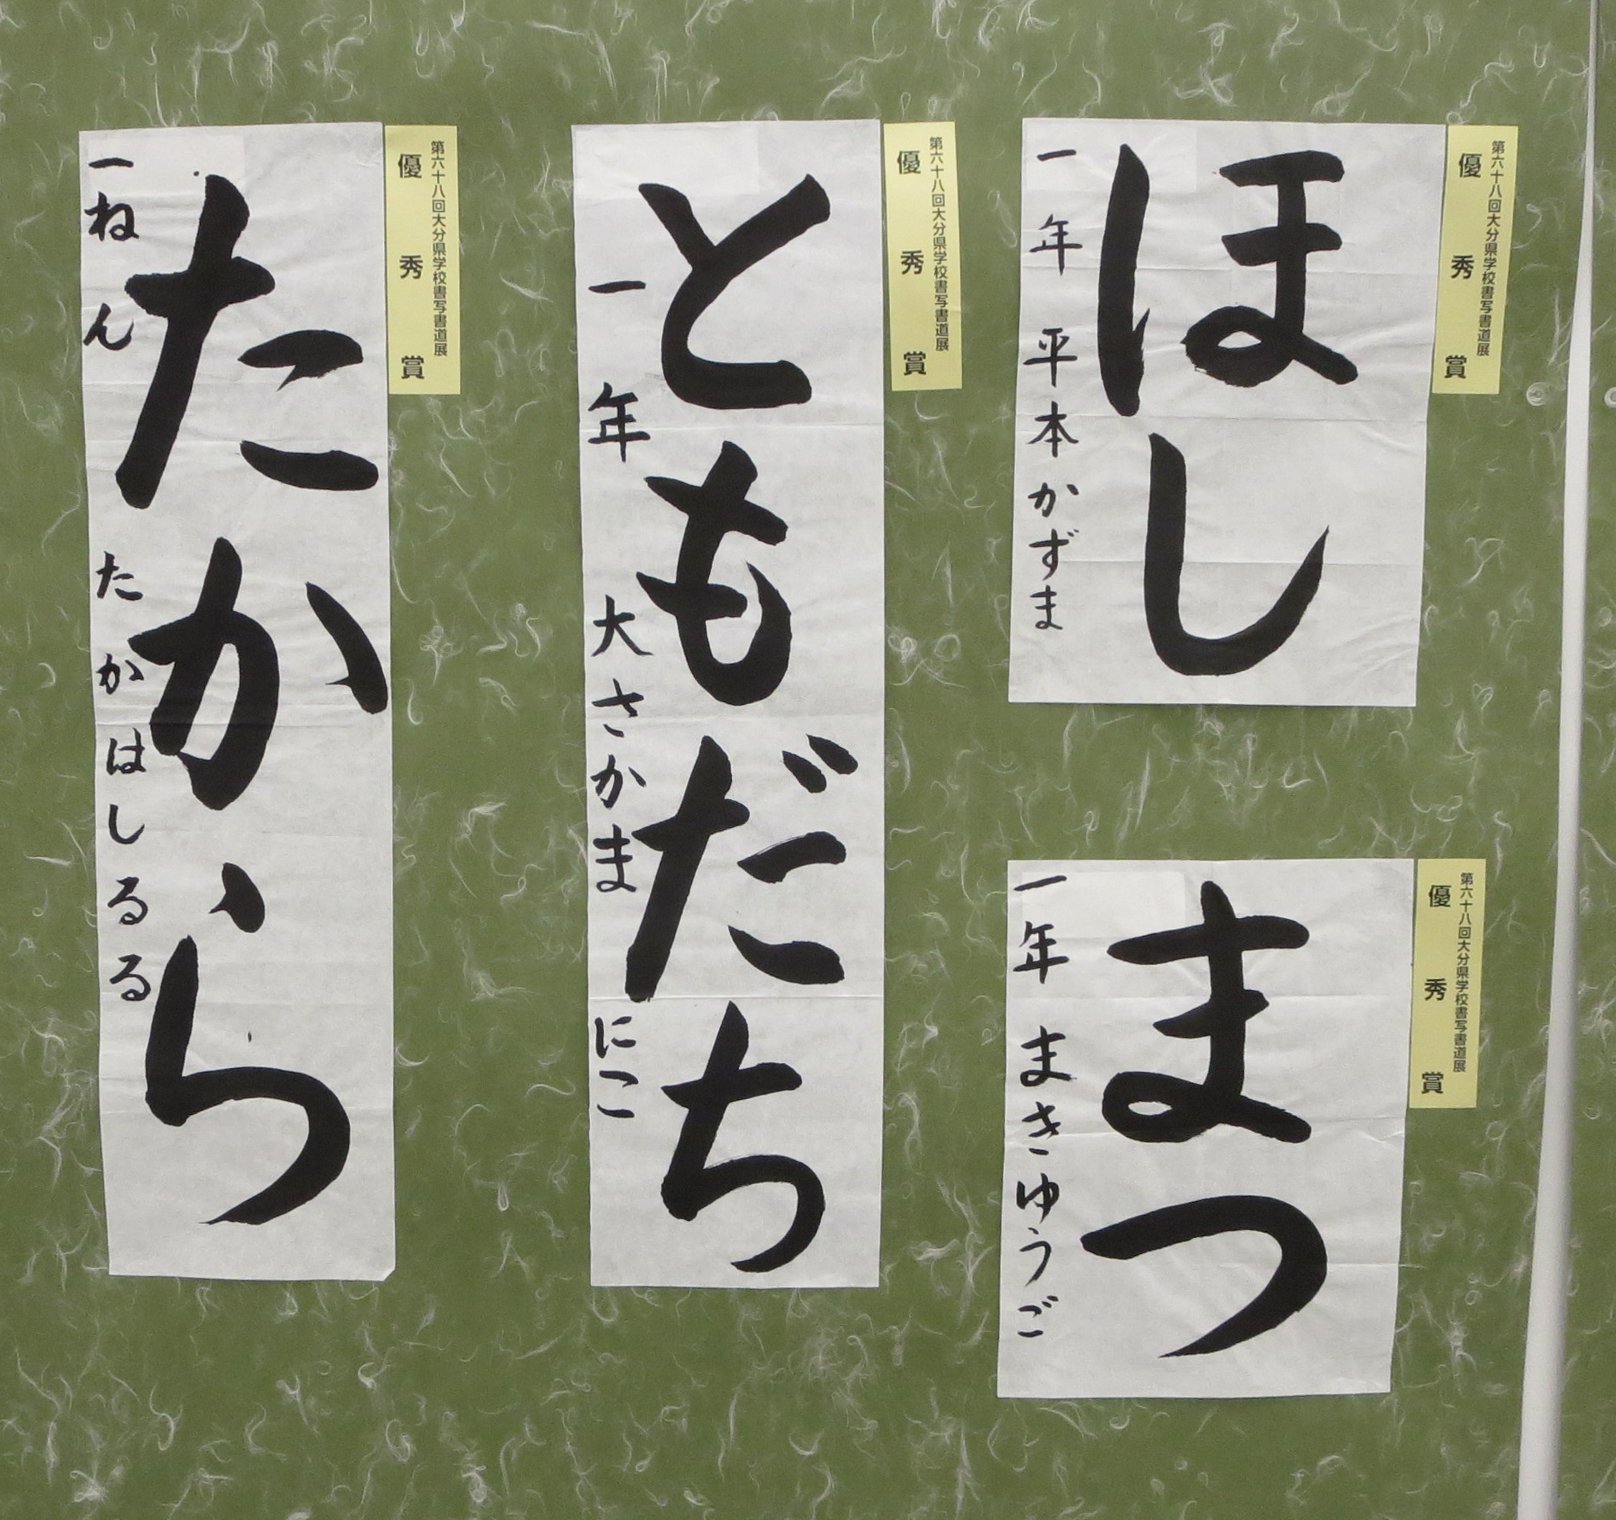 第六十八回大分県学校書写書道展
優秀賞
ほし
一年 平本かずま
第六十八回大分県学校書写書道展
優秀賞
まつ
一年 まきゆうご
第六十八回大分県学校書写書道展
優秀賞
ともだち
一年 大さかまにこ
第六十八回大分県学校書写書道展
優秀賞
たから
一ねん たかはしるる